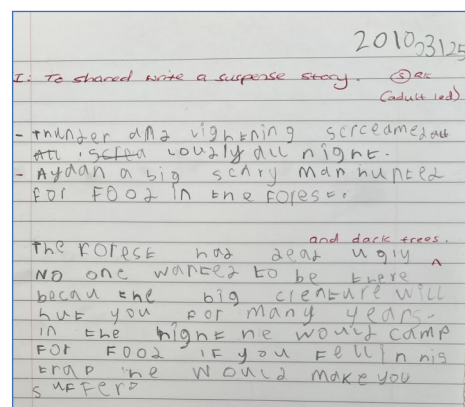 201003125
I: To shared write a suspense story. (S) RK
(adult led)
- thunder and lightning screamed all
loudly all night.
- Aydan a big scary man hunted
for food in the forest.
and dark trees.
The forest had dead ugly ^
No one wanted to be there
becau the big creature will
hut you for many years.
in the night he would camp
for food if you fell in his
trap he would make you
suffer